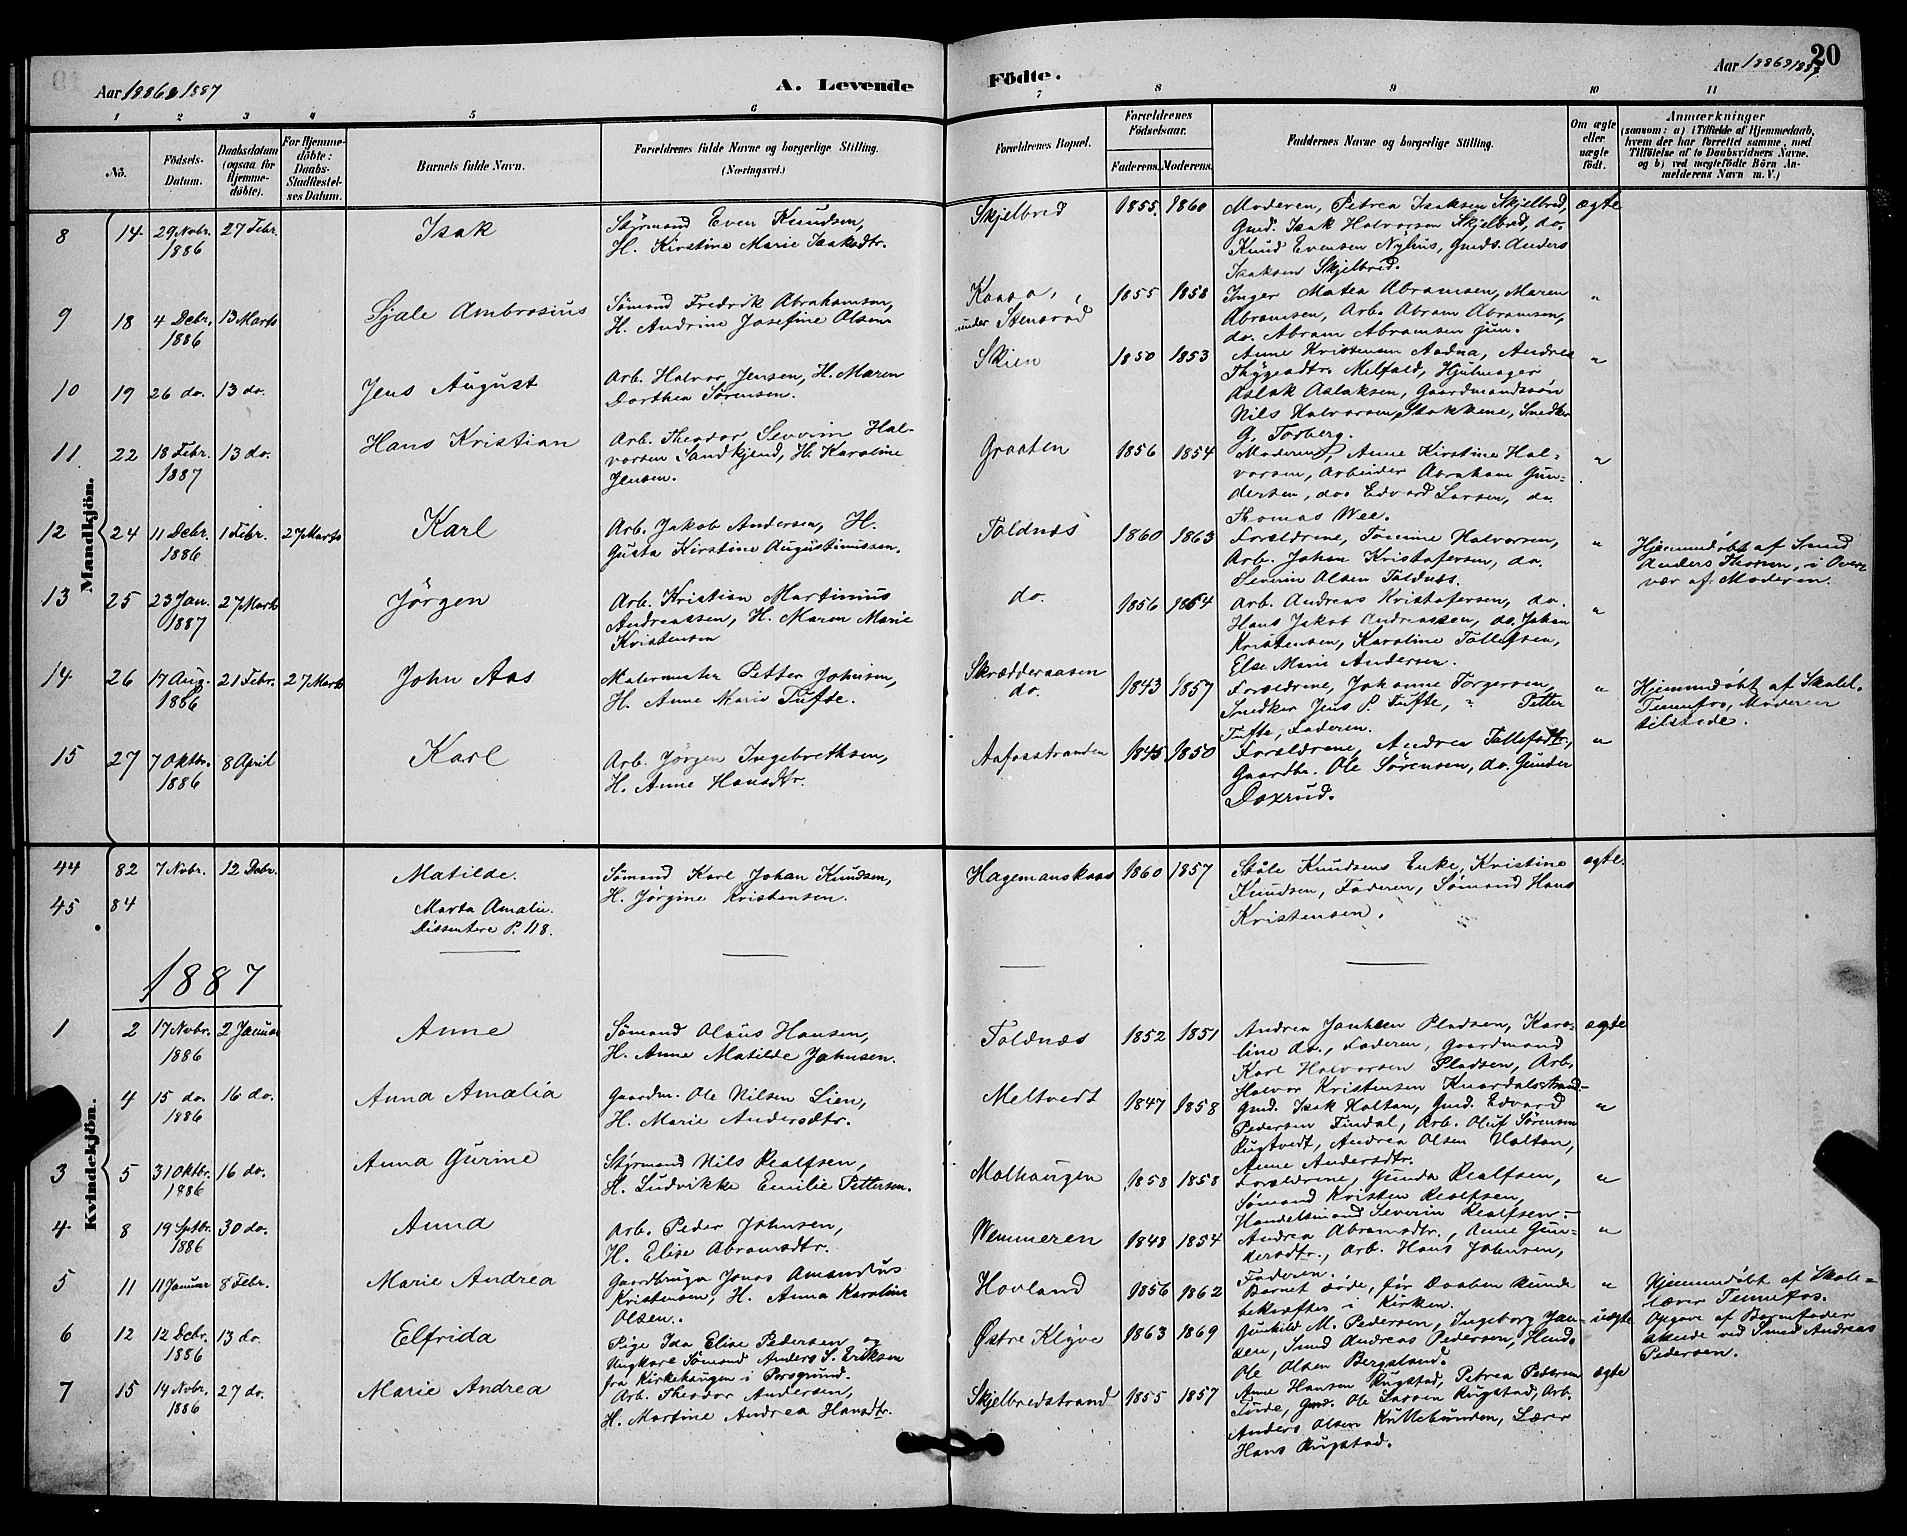 Aar 1886 & 1887
A. Levende
Födte.
Aar 1886 & 1887
20
1 2 3 4 5 6 7 8 9 10 11
No.
Födsels-Datum.
Daabsdatum (ogsaa for Hjemme-döbte).
For Hjemme-döbte: Daabs-Stadfæstelses Datum.
Barnets fulde Navn.
Forældrenes fulde Navne og borgerlige Stilling. (Næringsvei.)
Forældrenes Bopæl.
Forældrenes Födselsaar.
Faderens. Moderens.
Faddernes Navne og borgerlige Stilling.
Om ægte eller uægte födt.
Anmærkninger
(saasom: a) i Tilfælde af Hjemmedaab, hvem der har forrettet samme, med Tilföielse af to Daabsvidners Navne, og b) ved uægtefödte Börn Anmelderens Navn m. V.)
Mandkjön.
8 14 29 Novbr. 1886 27 Febr. Isak
Styrmand Even Knudsen,
H. Kirstine Marie Isaksdtr.
Skjelbred 1855. 1860
Moderen, Petrea Isaksen Skjelbred,
Gmd. Isak Halvorsen Skjelbred, do.
Knud Evensen Nyhus, Gmds. Anders
Isaksen Skjelbred.
ægte
9 18 4 Debr. 1886 13 Marts Ambrosius
Sömand Fredrik Abrahamsen,
H. Andrine Josefine Olsen
under Stensrød 1855 1858
Inger Matea Abramsen, Maren
Abramsen, Arb. Abram Abramsen,
do. Abram Abramsen jun.
"
10 19 26 do. 13 do. Jens August
Arb. Halvor Jensen, H. Maren
Dorthea Sørensen.
Skien 1850 1853
Anne Kristensen Aadna, Andrea
Melfald, Hjulmager
Aslak Aslaksen, Gaardmandssøn
Nils Halvorsen Stokkene, Snedker
G. Torberg.
"
11 22 18 Febr. 1887 13 do. Hans Kristian
Arb. Theodor Severin Hal-
vorsen Sandkjend, H. Karoline
Jensen.
Graaten 1856 1854
Moderen, Anne Kirstine Hal-
vorsen, Arbeider Abraham Gun-
dersen, do. Edvard Larsen, do.
Thomas Wee.
"
12 24 11 Debr. 1886 1 Febr. 27 Marts Karl
Arb. Jakob Andersen, H.
Gusta Kirstine Augustinussen.
Toldnæs 1860 1863
Forældrene, Tomine Halvorsen,
Arb. Johan Kristofersen, do.
Severin Olsen Toldnæs.
"
Hjemmedøbt af Smed
Anders Thorsen, i Over-
vær af Moderen.
13 25 23 Jan. 1887 27 Marts Jörgen
Arb. Kristian Martinius
Andreassen, H. Maren Marie
Kristensen
do. 1856 1864
Arb. Andreas Kristofersen, do.
Hans Jakob Andreassen, do. Johan
Kristensen, Karoline Tollefsen,
Else Marie Andersen.
"
14 26 17 Aug. 1886 21 Febr. 27 Marts John Aas
Malermester Petter Johnsen,
H. Anne Marie Tufte.
Skrædderaasen
do. 1843 1857
Forældrene, Johanne Torgersen,
Snedker Jens P. Tufte, " Petter
Tufte, Faderen.
"
Hjemmedøbt af Skolel.
Tennefos, Moderen
tilstede.
15 27 7 Oktbr. 1886 8 April Karl
Arb. Jörgen Ingebrethsen,
H. Anne Hansdtr.
Aafosstranden 1845 1850
Forældrene, Andrea Tollefsdtr.,
Gaardbr. Ole Sørensen, do. Gunder
Doxrud.
"
44 82 7 Novbr. 12 Debr. Matilde.
Sømand Karl Johan Knudsen,
H. Jørgine Kristensen.
Hagemanskaas 1860 1857
Ståle Knudsens Enke, Kristine
Knudsen, Faderen, Sømand Hans
Kristensen.
ægte.
45 84 Marta Amalie.
Dissentere P. 118.
1887
Kvindekjön.
1 2 17 Novbr. 1886 2 Januar Anne
Sömand Olaus Hansen,
H. Anne Matilde Johnsen.
Toldnæs 1852 1851
Andrea Pladsen, Karo-
line do., Faderen, Gaardmand
Karl Halvorsen Pladsen, Arb.
Halvor Kristensen Knardalsstrand-
ægte
4 15 do. 1886 16 do. Anna Amalia
Gaardm. Ole Nilsen Lien,
H. Marie Andersdtr.
Meltvedt 1847 1858
Gmd. Isak Holtan, Gmd. Edvard
Pedersen Findal, Arb. Oluf Sørensen
Rugtvedt, Andrea Olsen Holtan,
Anne Andersdtr.
"
3 5 31 Oktbr. 1886 16 do. Anna Gurine
Styrmand Nils Realfsen,
H. Ludvikke Emilie Pettersen.
Molhaugen 1858 1858
Forældrene, Gunda Realfsen,
Sømand Kristen Realfsen,
Handelsmand Severin Realfsen.
"
4 8 19 Sptbr. 1886 30 do. Anna
Arb. Peder Johnsen,
H. Elise Abramsdtr.
Wemmeren 1848 1854
Andrea Abramsdtr., Anne Gun-
dersdtr., Arb. Hans Johnsen,
Faderen.
"
5 11 11 Januar 8 Febr. Marie Andrea
Gaardbruger Jonas Amandus
Kristensen, H. Anna Karoline
Olsen.
Hovland 1856 1862
Barnet døde, før Daaben kunde
bekræftes i Kirken.
"
Hjemmedøbt af Skole-
lærer Tennefos.
6 12 12 Debr. 1886 13 do. Elfrida
Pige Ida Elise Pedersen og
Ungkarl Sømand Anders S. Eriksen
fra Kirkehaugen i Porsgrund.
Østre Klyve 1863 1869
Gunhild M. Pedersen, Ingeborg Jan-
sen, Smed Andreas Pedersen,
Ole Olsen Bergsland.
uægte
Opgave af Barnefader
skede ved Smed Andreas
Pedersen.
7 15 14 Novbr. 1886 27 do. Marie Andrea
Arb. Theodor Andersen,
H. Martine Andrea Hansdtr.
Skjelbredstrand 1855 1857
Anne Hansen Rugstad, Petrea Pedersen
Gmd. Ole Larsen Rugstad, Arb.
Anders Olsen Kuttebunden, Lærer
Hans Rugstad.
ægte